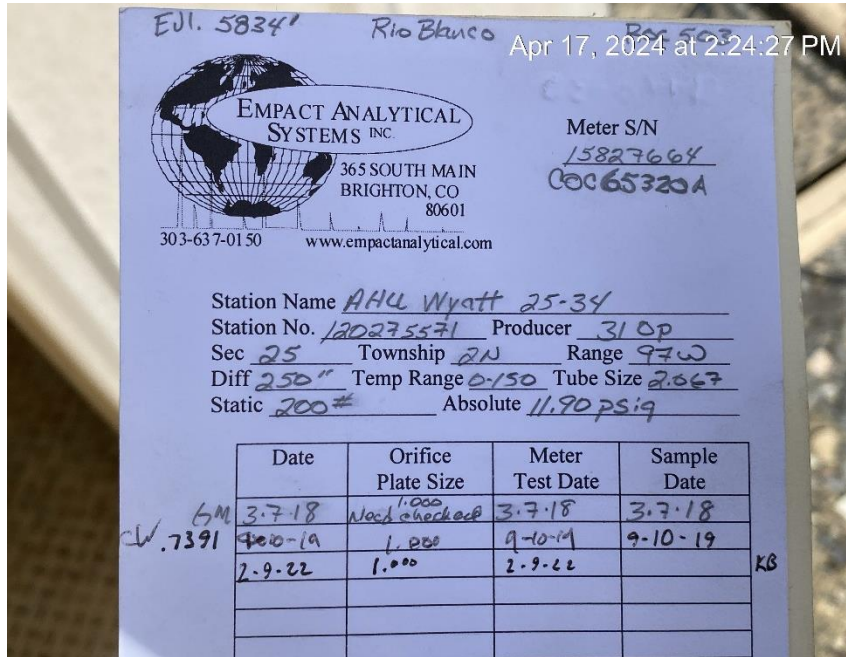 EJl. 5834' Rio Blanco
Apr 17, 2024 at 2:24:27 PM
EMPACT ANALYTICAL
SYSTEMS INC.
365 SOUTH MAIN
BRIGHTON, CO
80601
303-637-0150 www.empactanalytical.com
Meter S/N
15827664
COC65320A
Station Name Wyatt 25-34
Station No. 120275571 Producer 31 OP
Sec 25 Township 2N Range 97W
Diff 250" Temp Range 0-150 Tube Size 2.067
Static 200# Absolute 11.90 psig
Date Orifice Plate Size Meter Test Date Sample Date
GM 3.7.18 1.000 Not checked 3.7.18 3.7.18
CW .7391 1.000 9-10-19 9-10-19
2-9-22 1.000 2-9-22 KB